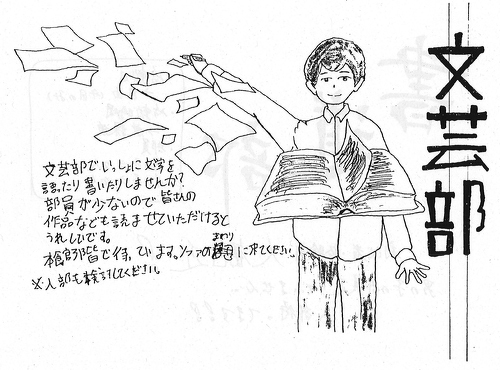 文芸部
文芸部でいっしょに文学を
語ったり書いたりしませんか?
部員が少ないので皆さんの
作品なども読ませていただけると
うれしいです。
部皆で待っています。ソファの まわり に来てください
※入部も検討してください。